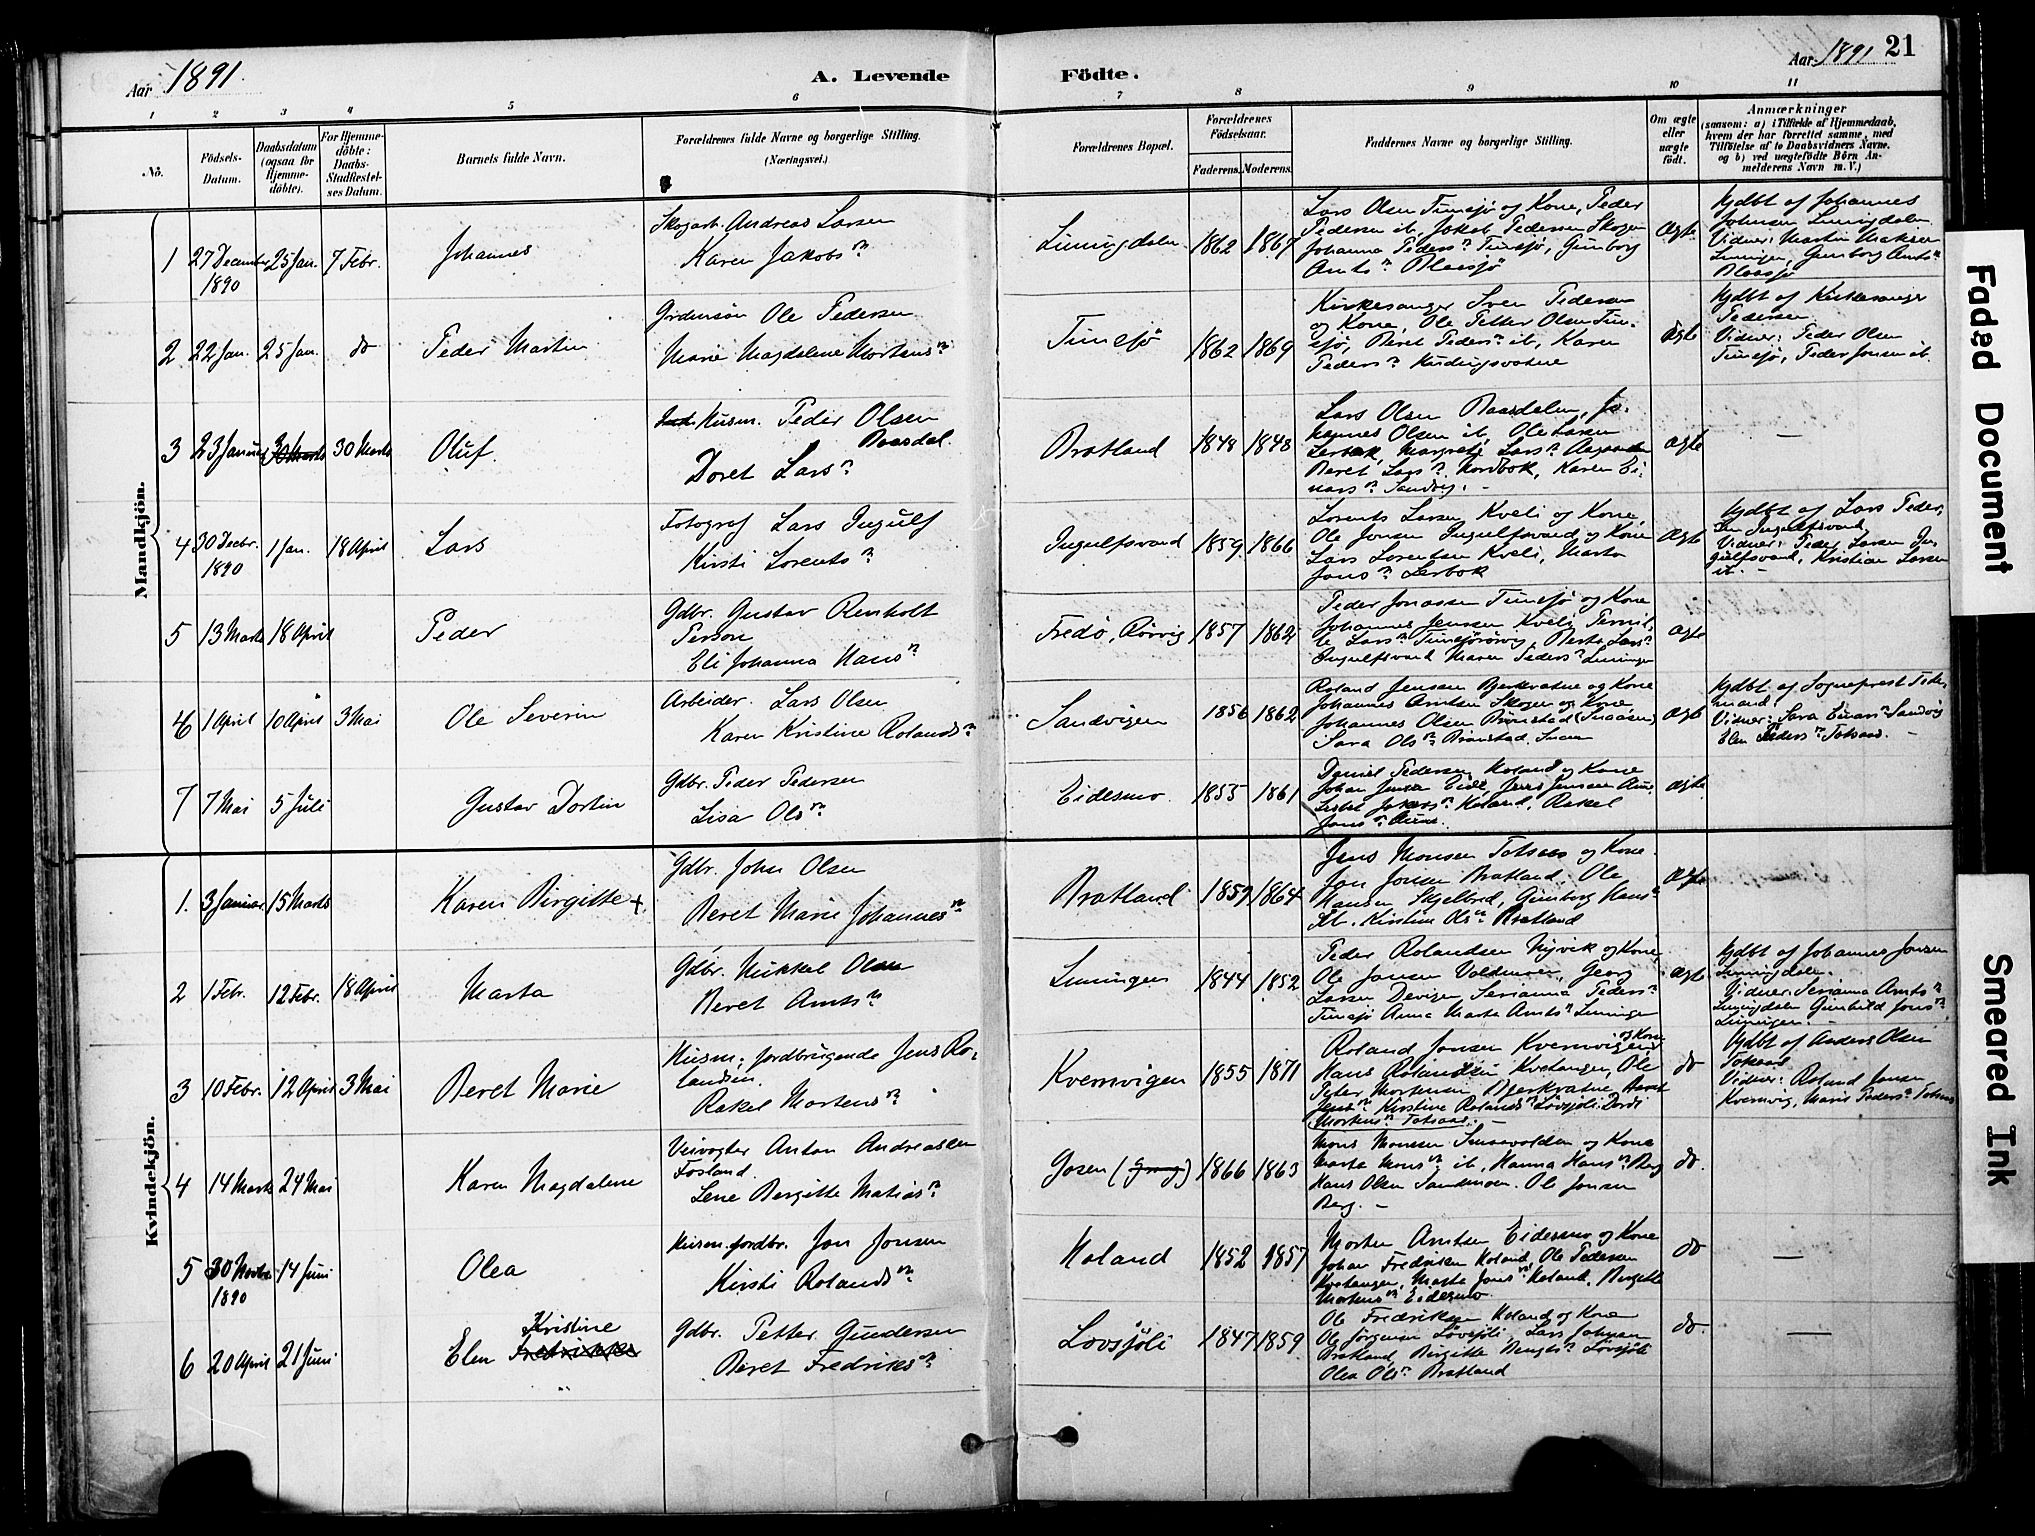 Aar 1891.
A. Levende Födte.
Aar 1891
21
1 2 3 4 5 6 7 8 9 10 11
No.
Födsels-Datum.
Daabsdatum (ogsaa for Hjemmedöbte).
For Hjemmedöbte: Daabs-Stadfæstelses Datum.
Barnets fulde Navn.
Forældrenes fulde Navne og borgerlige Stilling.
(Næringsvei.)
Forældrenes Bopæl.
Forældrenes Födselsaar.
Faderens.
Moderens.
Faddernes Navne og borgerlige Stilling.
Om ægte eller uægte födt.
Anmærkninger
(saasom: a) i Tilfælde af Hjemmedaab, hvem der har forrettet samme, med Tilföielse af to Daabsvidners Navne, og b) ved uægtefödte Börn Anmelderens Navn m. V.)
Mandkjön.
1 27 December 1890 25 Jan. 7 Febr. Johannes
Skogarb. Andreas Larsen
Karen Jakobsn
Limingdalen 1862 1867
Lars Olsen Tunsjö og Kone, Peder
Pedersen ib, Jakob Pedersen Skogen
Johanna Pedersn Tunsjö, Gunborg
Amtsn Blaasjö
Ægte
Hjdbt af Johannes
Johnsen Limingdalen
Vidner: Martin
Limingen, Gunborg Amtsn
Blaasjö
2 22 Jan. 25 Jan. do Peder Martin
Ole Pedersen
Marie Magdalene Mortensn
Tunsjö 1862 1869
Kirkesanger Sven Pedersen
og Kone, Ole Petter Olsen Tunsjö,
Beret Pedersn ib, Karen
Pedersn
Ægte
Hjdbt af Kirkesanger
Pedersen
Vidner: Peder Olsen
Tunsjö, Peder Jonsen ib.
3 23 Januar 30 Marts 30 Marts Oluf
Husm. Peder Olsen
Baasdal
Doret Larsn
Bratland 1848 1848
Lars Olsen Baasdalen, Johannes
Olsen ib, Ole Larsen
Lerbak, Margrete Larsn
Beret Larsn Nordbok, Karen Einarsn
Sandvig. -
ægte
—
4 30 Decbr. 1890 1 Jan. 18 April Lars
Fotograf Lars Ingulf
Kirsti Lorentsn
Ingulfsvand 1859 1866
Lorents Larsen Kveli og Kone,
Ole Jonsen Ingulfsvand og Kone
Lars Lorentsen Kveli, Marta
Jonsn Lerbok
Ægte
Hjdbt af Lars Pedersen
Ingulfsvand
Vidner: Peder Larsen Ingulfsvand,
Kristian Larsen
ib. -
5 13 Marts 18 April Peder
Gdbr. Gustav Renholt
Person
Eli Johanna Hansn
Fredö, Rörvig 1857 1862
Peder Jonassen Tunsjö og Kone
Johannes Jensen Kveli, Pernille
Larsn Tunsjörörvig, Larsn
Ingulfsvand Maren Pedersn Limingen
ægte
6 1 April 10 April 3 Mai Ole Severin
Arbeider. Lars Olsen
Karen Kristine Rolandsn
Sandvigen 1856 1862
Roland Jensen Bjerkvatne og Kone
Johannes Amtsen Skogen og Kone,
Johannes Olsen Brönstad (Snaasen)
Sara Olsn Brönstad
Ægte
Hjdbt af Sogneprest
Vidner: Sara Einarsn Sandvig
Elen Pedersn Totsaas. -
7 7 Mai 5 Juli Gustav Dortin
Gdbr. Peder Pedersen
Lisa Olsn
Eidesmo. 1855 1861
Daniel Pedersen Noland og Kone
Johan Jensen Eide, Jens Jensen
Jakobsn Noland, Rakel
Jonsn
ægte
Kvindekjön.
1. 3 Januar. 15 Marts Karen Birgitte +
Gdbr. John Olsen
Beret Marie Johannesn
Bratland 1859 1864
Jens Monsen Totsaas og Kone.
Jon Jonsen Bratland, Ole
Hansen Skjelbred, Gunborg Hansn
Kirstine Olsn Bratland
Ægte
2 1 Febr. 12 Febr. 18 April Marta
Gdbr. Mikkel Olsen
Beret Amtsn
Limingen 1844 1852
Peder Rolandsen Nyvik og Kone,
Ole Jonsen Voldmoen, Georg
Larsen Devigen Serianna Pedersn
Tunsjö Anna Marta Amtsn Limingen
ægte
Hjdbt af Johannes Jonsen
Limingdalen.
Vidner: Serianna Amtsn
Limingdalen Gunhild Jonsn
Limingen. -
3 10 Febr. 12 April 3 Mai Beret Marie
Husm. jordbrugende Jens Rolandsen.
Rakel Mortensn
Kvernvigen 1855 1871
Roland Jonsen Kvernvigen og Kone
Hans Rolandsen Kvetangen, Ole
Peter Mortensen Bjerkvatne, Beret
Jensn Kirstine Rolandsn Lövsjöli. Dordi
Mortensn Totsaas. -
do
Hjdbt af Anders Olsen
Totsaas
Vidner: Roland Jonsen
Kvernvig, Marie Pedersn Totsaas
4 14 Marts 24 Mai Karen Magdalene
Veivogter Anton Andreassen
Fosland.
Lene Bergitte Matiasn
Gosen (Grong) 1866 1863
Mons Monssen og Kone
Marta Monsn ib, Hanna Hansn Berg
Hans Olsen Sandmoen. Ole Jonsen
Berg. -
do.
5 30 Novbr 1890 14 Juni Olea
Husm. jordbr. Jon Jonsen
Kirsti Rolandsn
Noland 1852 1857
Morten Amtsen Eidesmo og Kone
Johan Fredriksen Noland Ole Pedersen
Kvetangen, Marta Jonsn Noland, Birgitte
Mortensn Eidesmo.
do
—
6 20 April 21 Juni Elen Kristine Fredrikke
Gdbr. Petter Gundersen
Beret Fredriksn
Lovsjöli 1847 1859
Ole Fredriksen Noland og Kone
Ole Jörgensen Lövsjöli, Lars Johnsen
Bratland, Birgitte Bengtsn Lövsjöli
Olea Olsn Bratland
do.
—
Faded Document
Smeared Ink